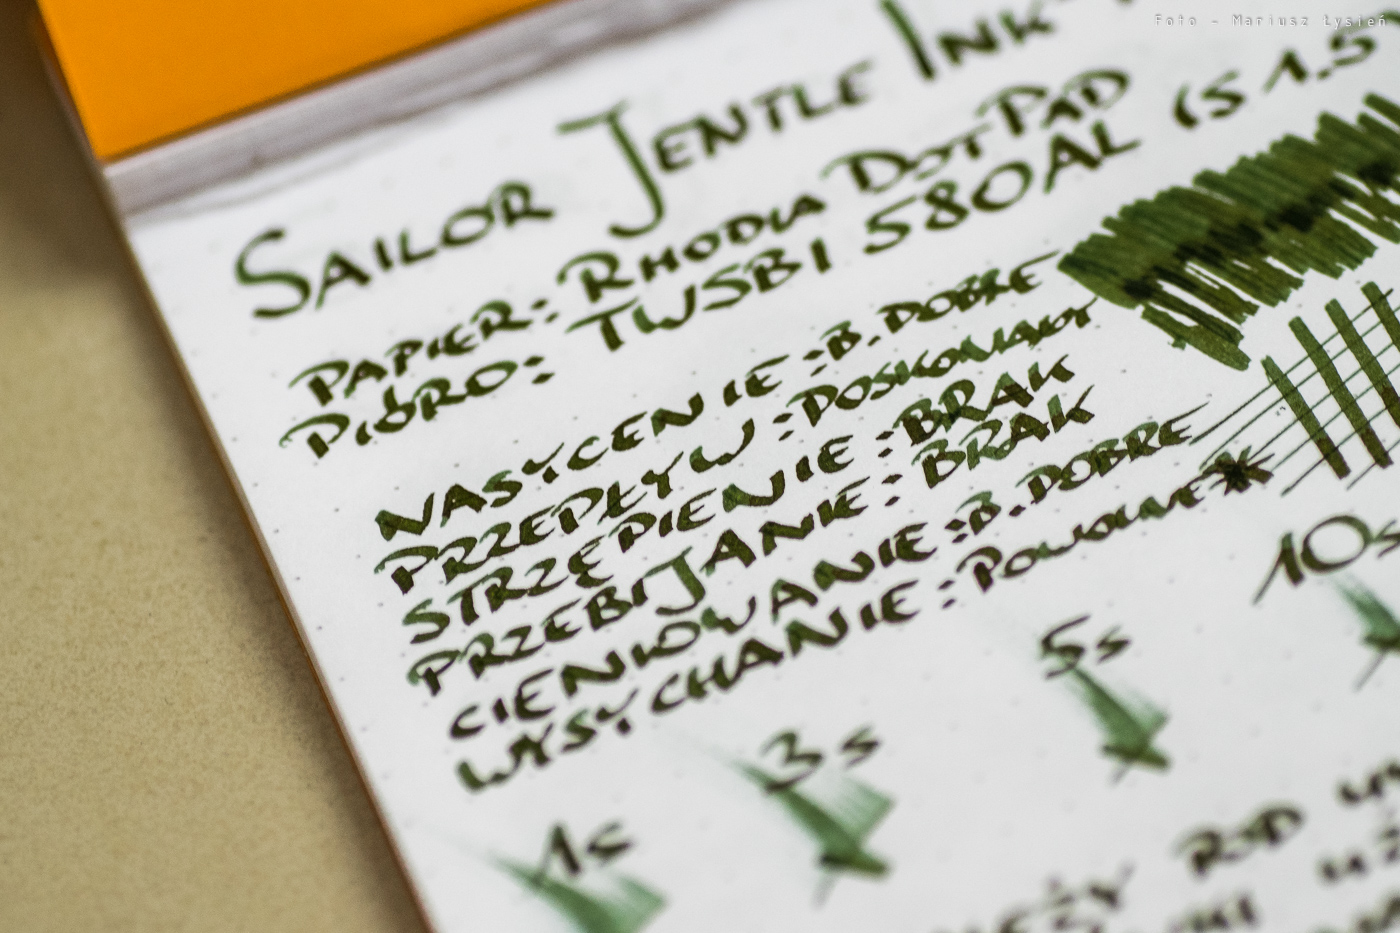 Foto - Mariusz Łysień
SAILOR JENTLE INK
PAPIER: RHODIA DOT PAD
PIÓRO: TWSBI 580AL (S 1.5
NASYCENIE: B. DOBRE
PRZEPŁYW: DOSKONAŁY
STRZĘPIENIE: BRAK
PRZEBIJANIE: BRAK
CIENIOWANIE: B. DOBRE
WYSYCHANIE: POWOLNE*
1s 3s 5s 10s
POD